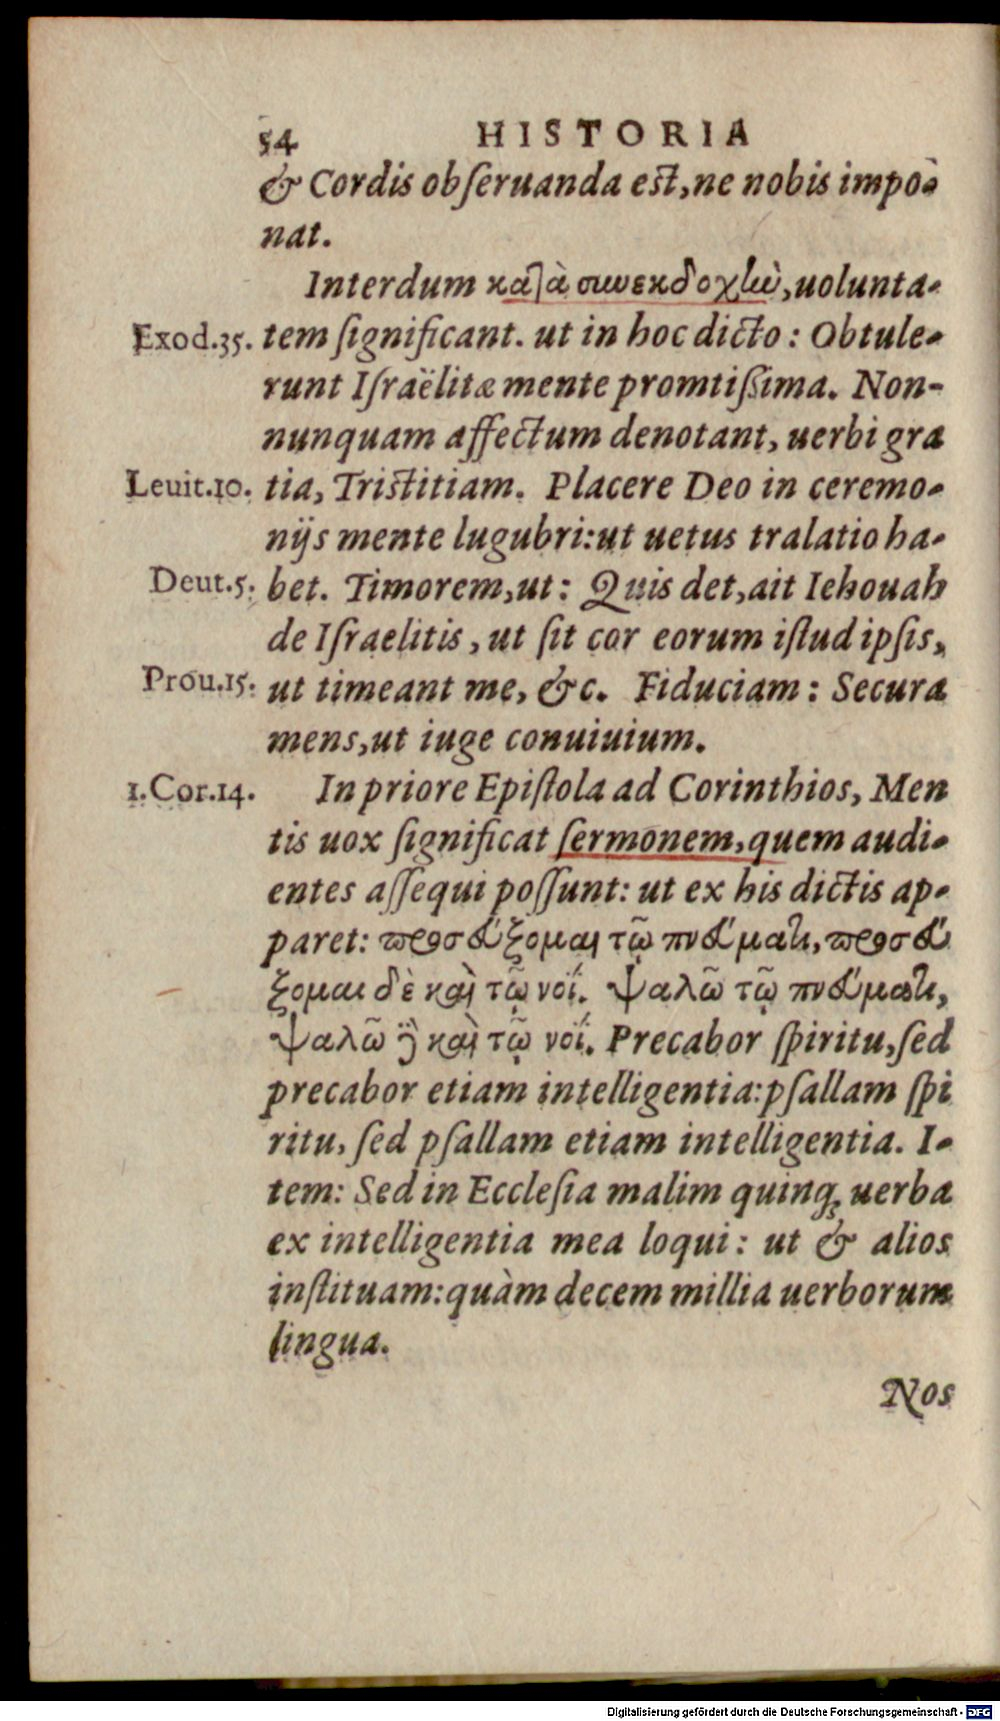 54 HISTORIA
& Cordis obſeruanda eſt, ne nobis impo-
nat.
Interdum καὶὰ συνεκδοχὴν, uolunta-
Exod.35. tem ſignificant. ut in hoc dicto: Obtule-
runt Iſraëlitæ mente promtißima. Non-
nunquam affectum denotant, uerbi gra
Leuit.10. tia, Triſtitiam. Placere Deo in ceremo-
nijs mente lugubri: ut uetus tralatio ha-
Deut.5. bet. Timorem, ut: Quis det, ait Iehouah
de Iſraelitis, ut ſit cor eorum iſtud ipſis,
Prou.15. ut timeant me, &c. Fiduciam: Secura
mens, ut iuge conuiuium.
1.Cor.14. In priore Epiſtola ad Corinthios, Men
tis uox ſignificat ſermonem, quem audi-
entes aſſequi poſſunt: ut ex his dictis ap-
paret: προσεύξομαι τῷ πνεύματι, προσεύ
ξομαι δὲ καὶ τῷ νοΐ. Ψαλῶ τῷ πνεύματι,
ψαλῶ δὲ καὶ τῷ νοΐ. Precabor ſpiritu, ſed
precabor etiam intelligentia: pſallam ſpi
ritu, ſed pſallam etiam intelligentia. I-
tem: Sed in Eccleſia malim quinq; uerba
ex intelligentia mea loqui: ut & alios
inſtituam: quàm decem millia uerborum
lingua.
Nos
Digitalisierung gefördert durch die Deutsche Forschungsgemeinschaft - DFG